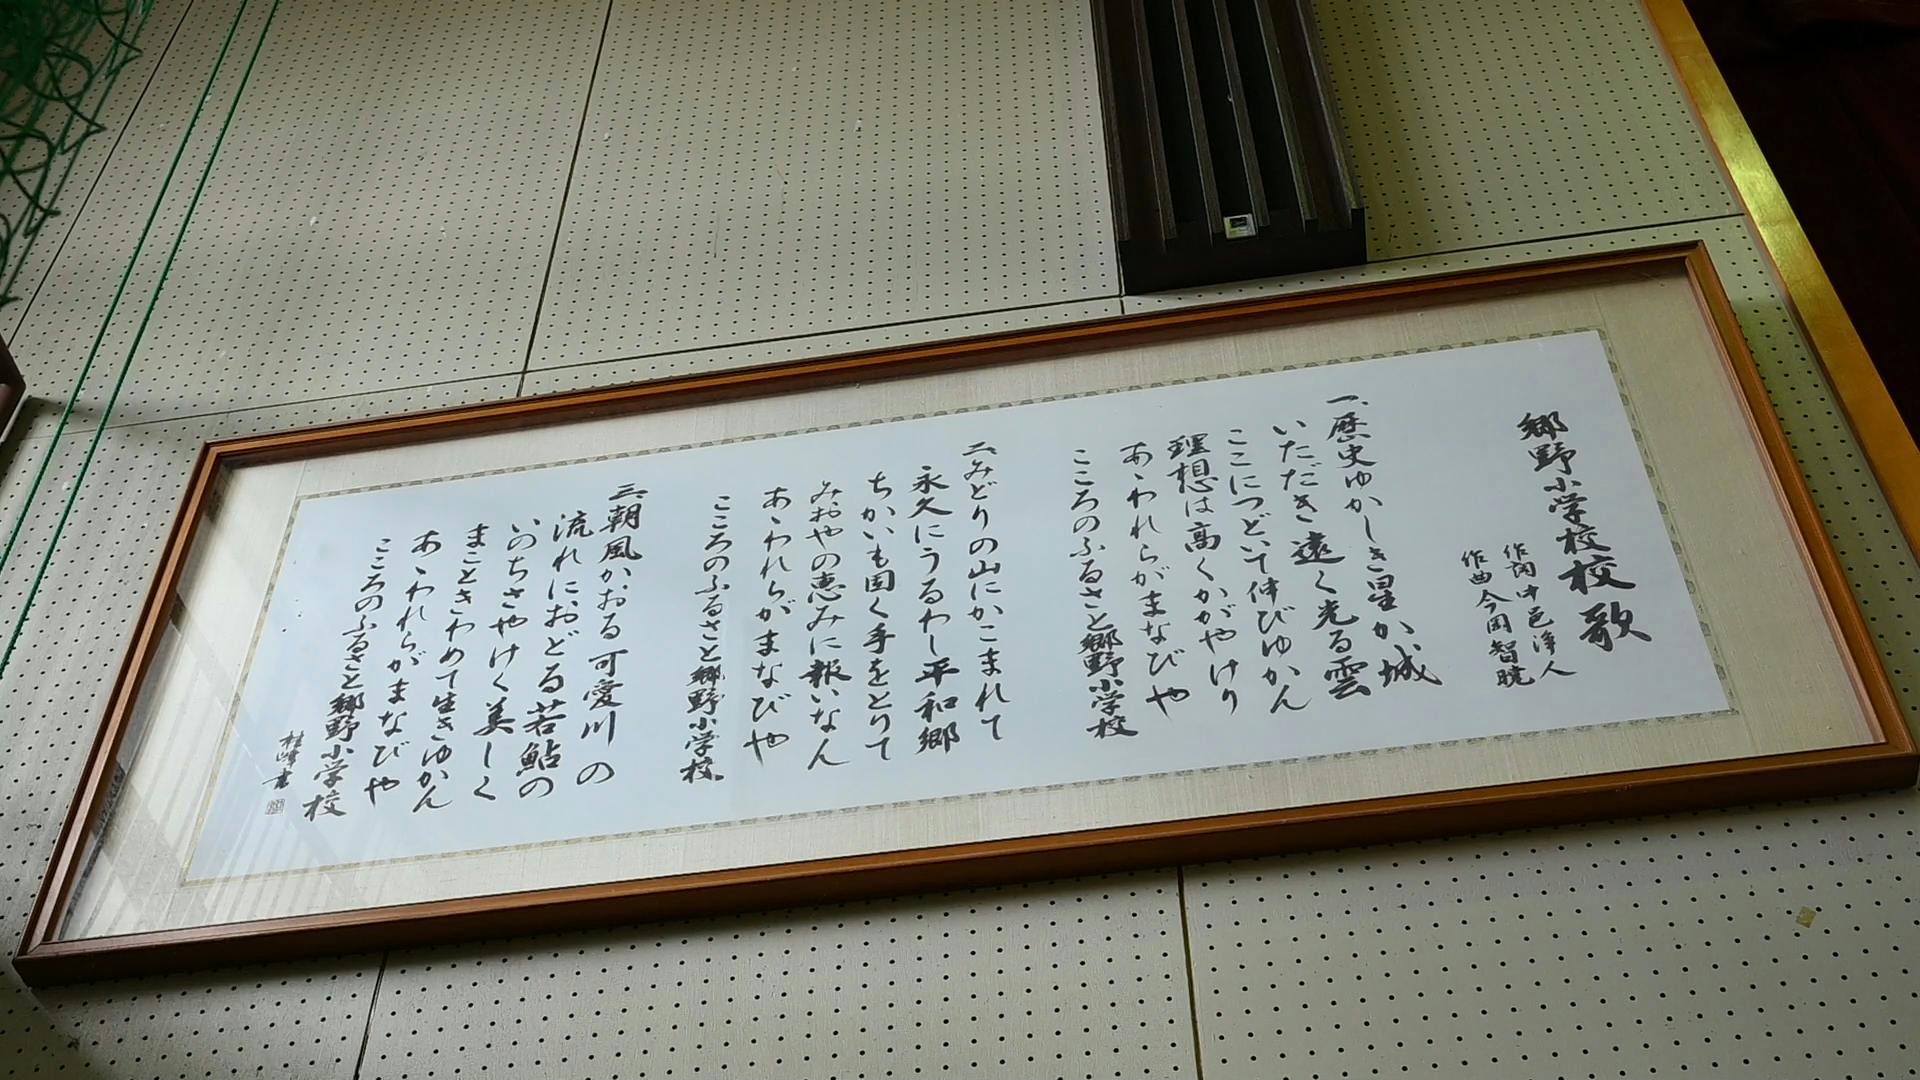 郷野小学校校歌
作詞 中邑浄人
作曲 今岡智暁
一、歴史ゆかしき星か城
いただき遠く光る雲
ここにつどいて伸びゆかん
理想は高くかがやけり
あゝわれらがまなびや
こころのふるさと郷野小学校
二、みどりの山にかこまれて
永久にうるわし平和郷
ちかいも固く手をとりて
みおやの恵みに報いなん
あゝわれらがまなびや
こころのふるさと郷野小学校
三、朝風かおる可愛川の
流れにおどる若鮎の
いのちさやけく美しく
まことときわめて生きゆかん
あゝわれらがまなびや
こころのふるさと郷野小学校
桂峰書